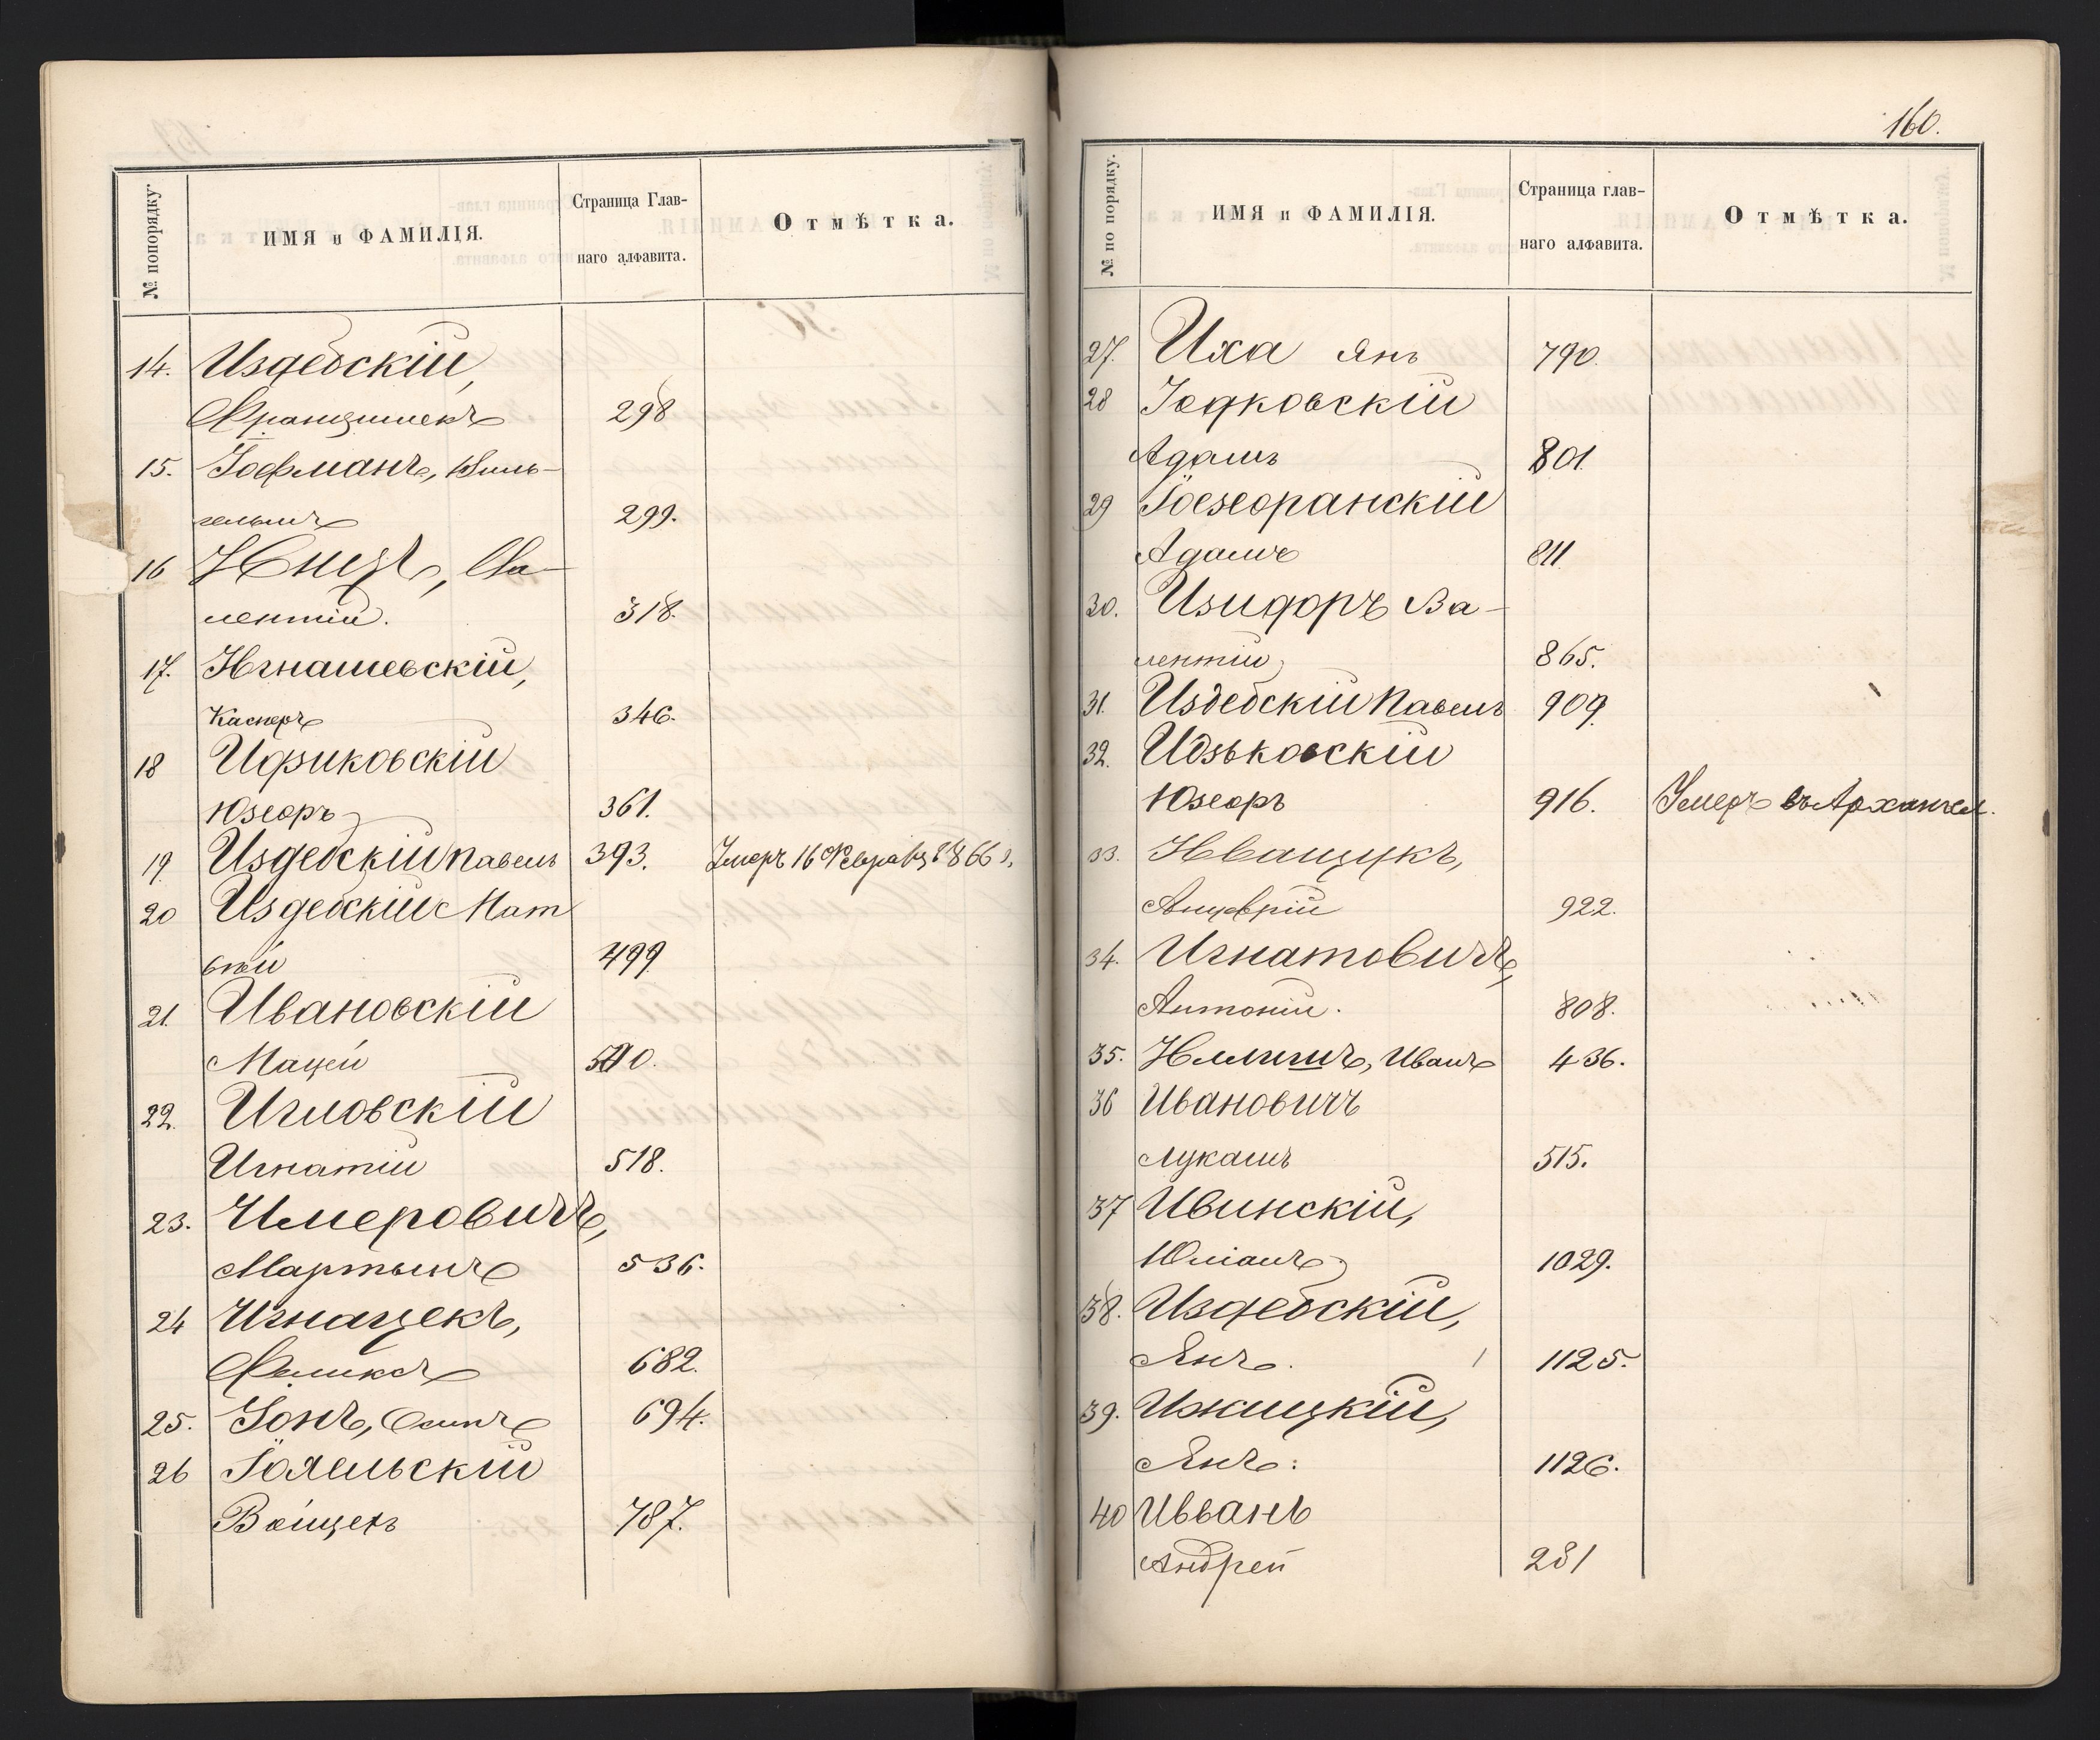 № попорядку.
ИМЯ и ФАМИЛІЯ.
Страница Глав-
наго алфавита.
Отмѣтка.
14. Издебскій,
Францишекъ 298
15. Іофманъ, Виль-
гельмъ 299.
16 Иницъ, Ва-
лентій. 318.
17. Игнашевскій,
Касперъ 346.
18 Ификовскій
Юзефъ 361.
19 Издебскій Павелъ 393. Умеръ 16 Февраля 1866 г.
20 Издебскій Мат
вѣй 499
21. Ивановскій
Мацей
22. Игловскій
Игнатій 518.
23. Имеровичъ,
Мартынъ 536.
24 Игнацекъ,
Феликсъ 682.
25. Іонъ, Осипъ 694.
26 Войцехъ 787.
160.
№ по порядку.
ИМЯ и ФАМИЛІЯ.
Страница глав-
наго алфавита.
Отмѣтка.
27. Иха Янъ 790.
28 Іодковскій
Адамъ 801.
29
Адамъ 811
30. Изидоръ Ва-
лентій 865.
31. Издебскій Павелъ 909
32. Идзьковскій
Юзефъ 916. Умеръ въ Архангел.
33. Иващукъ,
922.
34. Игнатовичъ,
Антоній. 808.
35. Иванъ 436.
36 Ивановичъ
Лукашъ 515.
37 Ивинскій,
Юліанъ 1029.
38. Издебскій,
Янъ. 1125.
39. Ижицкій,
Янъ. 1126.
40 Ивванъ
Андрей 281